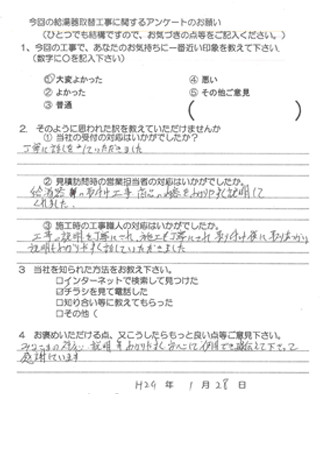 今回の給湯器取替工事に関するアンケートのお願い
(ひとつでも結構ですので、お気づきの点等をご記入ください。)
1、今回の工事で、あなたのお気持ちに一番近い印象を教えて下さい
(数字に○を記入下さい)
① 大変よかった ④ 悪い
② よかった ⑤ その他ご意見
③ 普通 ( )
2. そのように思われた訳を教えていただけませんか
① 当社の受付の対応はいかがでしたか?
丁寧に話をきいていただきました
② 見積訪問時の営業担当者の対応はいかがでしたか。
給湯器 工事 わかりやすく説明して
くれました
③ 施工時の工事職人の対応はいかがでしたか。
工事の説明も丁寧にされ、施工も丁寧にされ
説明もわかりやすく話していただきました
3 当社を知られた方法をお教え下さい。
□インターネットで検索して見つけた
☑チラシを見て電話した
□知り合い等に教えてもらった
□その他(
4 お褒めいただける点、又こうしたらもっと良い点等ご意見下さい。
説明 わかりやすく 下さって
感謝しています
H29 年 1 月 28 日